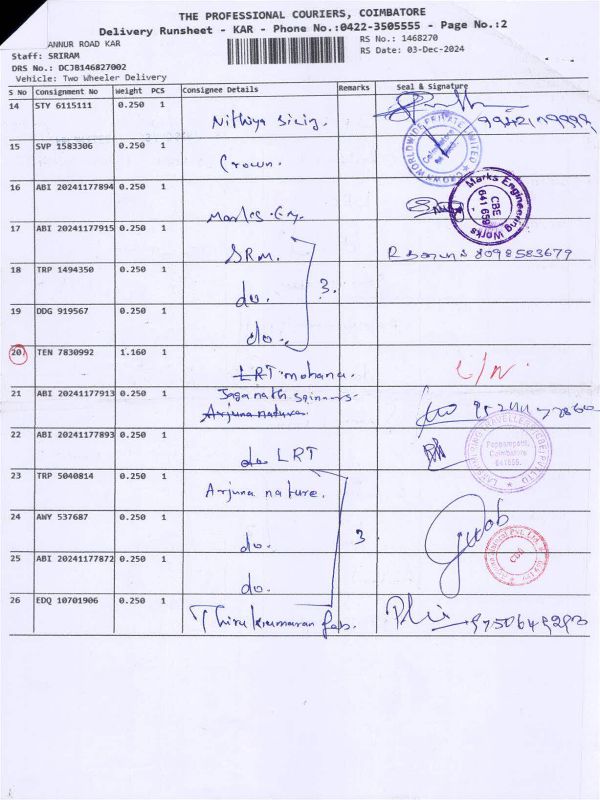 THE PROFESSIONAL COURIERS, COIMBATORE
Delivery Runsheet - KAR - Phone No.:0422-3505555 - Page No.:2
ANNUR ROAD KAR
RS No.: 1468270
Staff: SRIRAM
RS Date: 03-Dec-2024
DRS No.: DCJB146827002
Vehicle: Two Wheeler Delivery
S No Consignment No Weight PCS Consignee Details Remarks Seal & Signature
14 STY 6115111 0.250 1 Nithiya
15 SVP 1583306 0.250 1 Crown.
CROWN WORLDWIDE PRIVATE LIMITED
Coimbatore
16 ABI 20241177894 0.250 1 Marks
Marks Engineering Works
CBE
641 659
17 ABI 20241177915 0.250 1 SRM. 8098583679
18 TRP 1494350 0.250 1 do. 3.
19 DDG 919567 0.250 1 do.
20. TEN 7830992 1.160 1 LRT mohana.
21 ABI 20241177913 0.250 1 Jaganath spinners
Arjuna nature
22 ABI 20241177893 0.250 1 do LRT
Coimbatore
23 TRP 5040814 0.250 1 Arjuna nature.
24 AWY 537687 0.250 1 do. 3
CBE
25 ABI 20241177872 0.250 1 do.
26 EDQ 10701906 0.250 1 Thirukumaran fab.